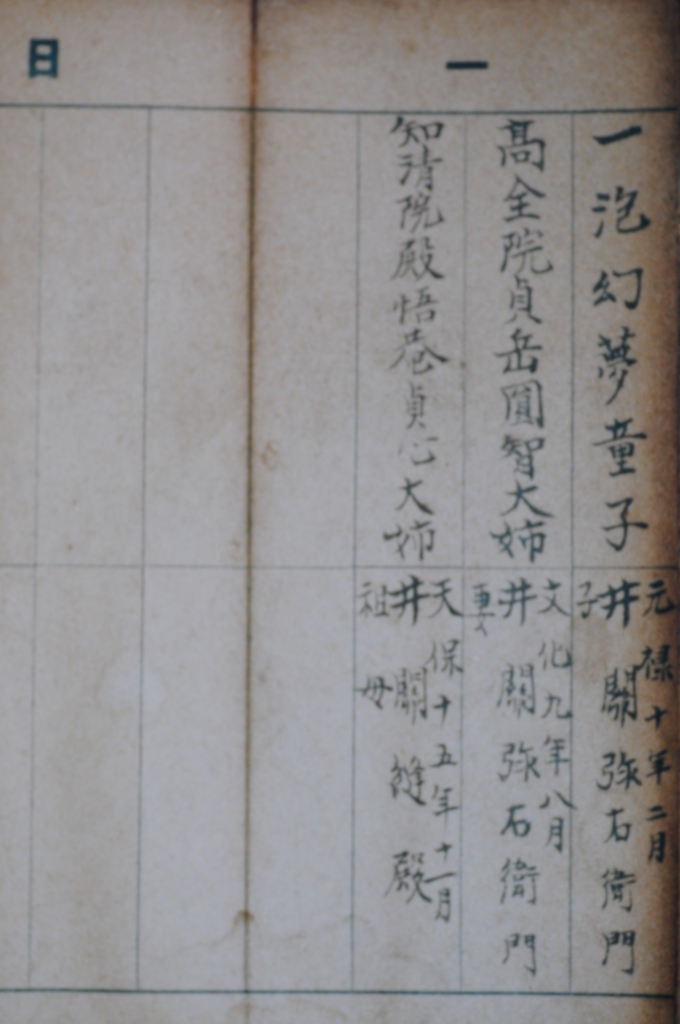 一日
一泡幻夢童子
元禄十年二月
井關弥右衛門
子
高全院貞岳圓智大姉
文化九年八月
井關弥右衛門
妻
知清院殿悟巷貞心大姉
天保十五年十一月
井關縫殿
祖母